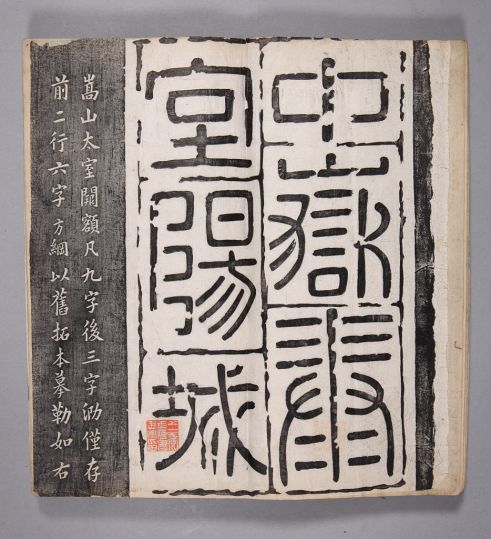 中嶽泰
室陽城
嵩山太室闕額凡九字後三字泐僅存
前二行六字方綱以舊拓本摹勒如右